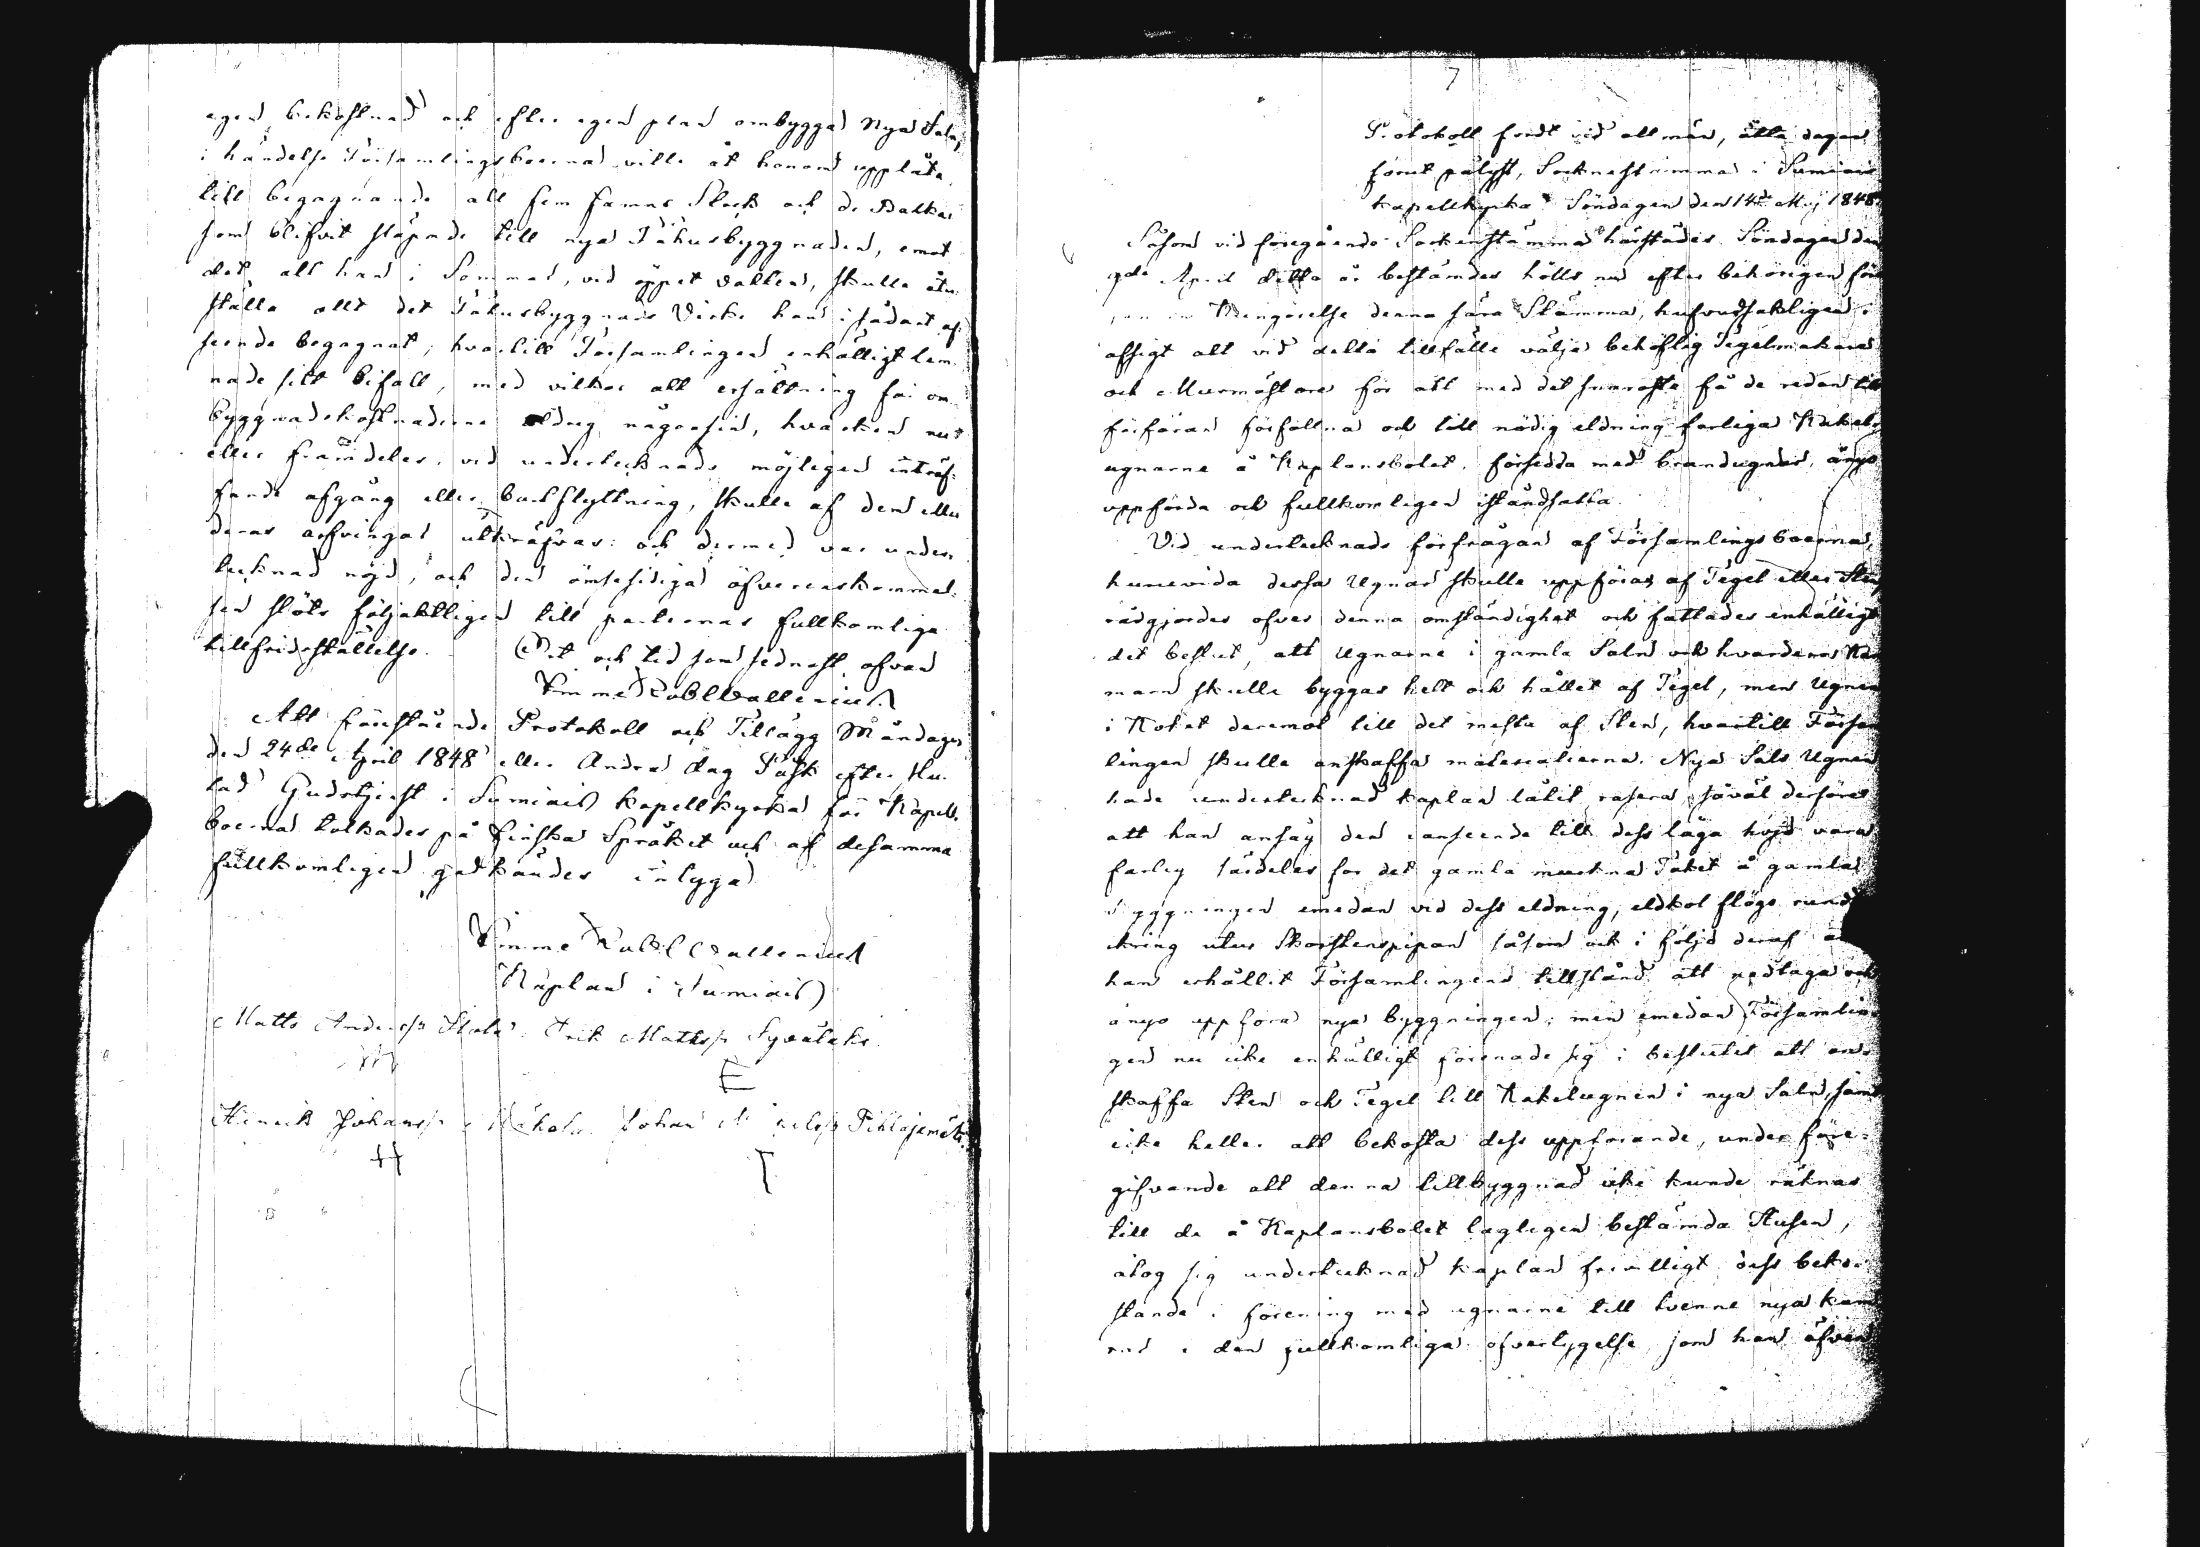 egen bekostnad och efter egen plan ombygga Nya Saln,
i händelse Församlingsboerna ville åt honom upplåta
till begagnande all fem famns Stock och de Balkar
som blifvit släpade till nya Fähusbyggnaden, emot
det, att han i Sommar, vid öppet vatten, skulle åter-
ställa allt det Fähusbyggnads Virke han i sådant af-
seende begagnat; hvartill Församlingen enhälligt lem-
nade sitt bifall, med vilkor att ersättning för om-
byggnadskostnaderne aldrig någonsin, hvarken nu
eller framdeles, vid undertecknads möjligen inträf-
fande afgång eller bortflyttning, skulle af dem eller
deras arfvingar utkräfvas: och dermed var under-
tecknad nöjd, och den ömsesidiga öfverenskommel-
sen slöts följaktligen till parternas fullkomliga
tillfridsställelse. Ort och tid som sednast ofvan
Att förestående Protokoll och Tillägg Måndagen
den 24de April 1848 eller Andra dag Påsk efter slu-
tad Gudstjenst i Sumiais kapellkyrka för Kapell-
boerna tolkades på finska Språket och af desamma
fullkomligen godkändes intyga
Kaplan i Sumiais
Matts Anderss: Erik Matss:
E
Henrik Johanss: Johan
H T
7
Protokoll fördt vid allmän, åtta dagar
förut pålyst, Socknestämma i Sumiais
kapellkyrka Söndagen den 14de Maj 1848.
Såsom vid föregående Sockenstämma härstädes Söndagen den
9de April detta år bestämdes hölls nu efter behörigen för-
denna Stämma, hufvudsakligen i
afsigt att vid detta tillfälle välja behöflig Tegelmakare
och Murmästare för att med det snaraste få de redan till
förfäran förfallna och till nödig eldning farliga Kakel-
ugnarne å Kaplansbolet, försedda med brandugnar, ånyo
uppförda och fullkomligen iståndsatta.
Vid undertecknads förfrågan af Församlingsboerna,
huruvida dessa Ugnar skulle uppföras af Tegel eller Sten,
rådgjordes öfver denna omständighet och fattades enhälligt
det beslut, att Ugnarne i gamla Saln och hvardera Kam-
marn skulle byggas helt och hållet af Tegel, men Ugnen
i Köket deremot till det mesta af Sten, hvartill Försam-
lingen skulle anskaffa materialierna. Nya Sals Ugnen
hade undertecknad kaplan låtit rasera, såväl derföre
att han ansåg den i anseende till dess låga höjd vara
farlig särdeles för det gamla murkna Taket å gamla
Byggningen emedan vid dess eldning, eldkol flögo rundt
ikring utur Skorstenspipan såsom ock i följd deraf att
han erhållit Församlingens tillstånd att nedtaga och
ånyo uppföra nya byggningen; men emedan Församlin-
gen nu icke enhälligt förenade sig i beslutet att an-
skaffa Sten och Tegel till Kakelugnen i nya Saln, samt
icke heller att bekosta dess uppförande, under före-
gifvande att denna tillbyggnad icke kunde räknas
till de å Kaplansbolet lagligen bestämda Husen,
åtog sig undertecknad kaplan frivilligt dess beko-
stande i förening med ugnarne till tvenne nya kam-
rar i den fullkomliga öfvertygelse, som han äfven